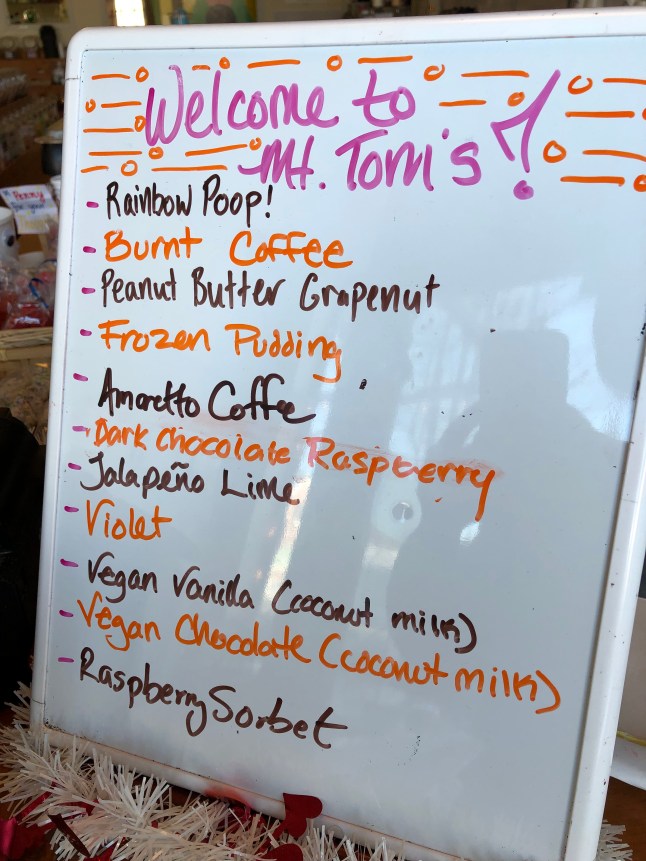 Welcome to
Mt. Tom's!
- Rainbow Poop!
- Burnt Coffee
- Peanut Butter Grapenut
- Frozen Pudding
- Amaretto Coffee
- Dark Chocolate Raspberry
- Jalapeño Lime
- Violet
- Vegan Vanilla (coconut milk)
- Vegan Chocolate (coconut milk)
- Raspberry Sorbet